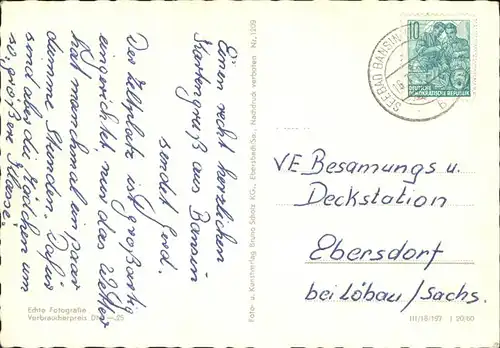 Einen recht herzlichen
Kartengruß aus Bansin
sendet Gerd.
Der Zeltplatz ist großartig
eingerichtet, nur das Wetter
hat manchmal ein paar
dumme Stunden. Dafür
sind aber die Mädchen um
so größere Klasse.
Echte Fotografie
Verbraucherpreis DM —.25
Foto- u. Kunstverlag Bruno Scholz KG., Ebersbach/Sa., Nachdruck verboten Nr. 1209
10
DEUTSCHE
DEMOKRATISCHE REPUBLIK
SEEBAD BANSIN
b
VE Besamungs u.
Deckstation
Ebersdorf
bei Löbau/Sachs.
III/18/197 J 20/60